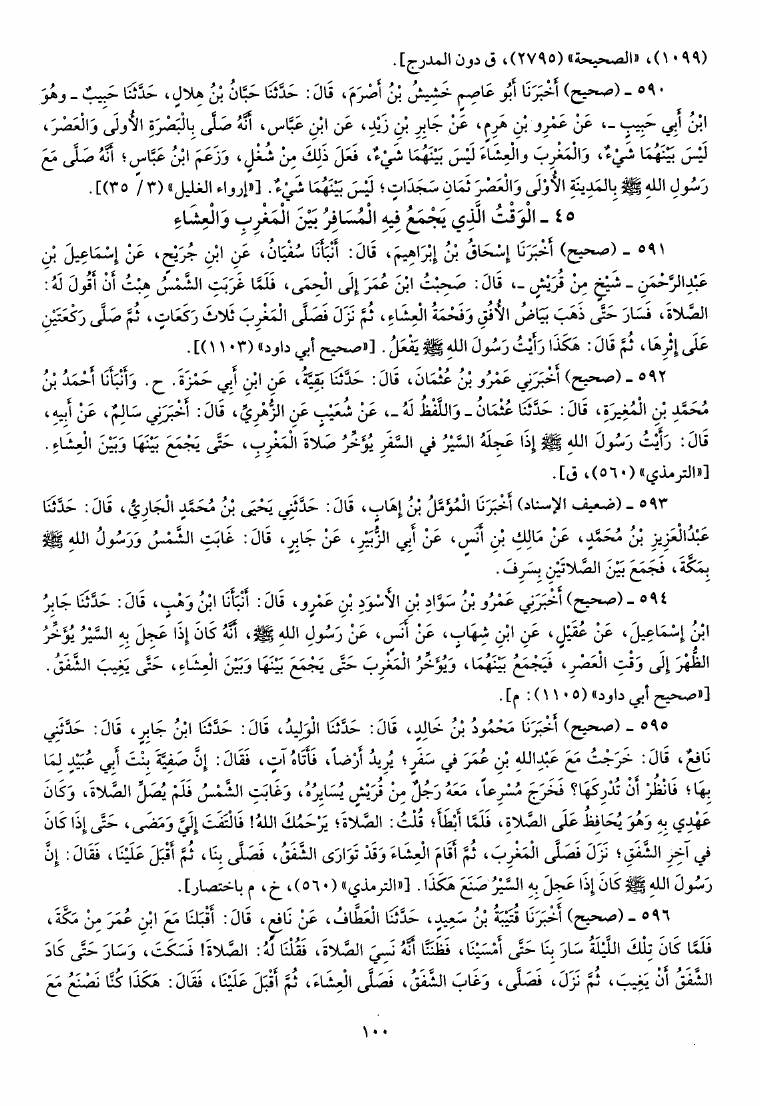 (١٠٩٩)، «الصحيحة» (٢٧٩٥)، ق دون المدرج].
٥٩٠ ـ (صحيح) أَخْبَرَنَا أَبُو عَاصِمٍ خَشِيشُ بْنُ أَصْرَمَ، قَالَ: حَدَّثَنَا حَبَّانُ بْنُ هِلالٍ، حَدَّثَنَا حَبِيبٌ ـ وهُوَ
ابْنُ أَبِي حَبِيبٍ ـ، عَنْ عَمْرِو بْنِ هَرِمٍ، عَنْ جَابِرِ بْنِ زَيْدٍ، عَنِ ابْنِ عَبَّاسٍ، أَنَّهُ صَلَّى بِالْبَصْرَةِ الأُولَى وَالْعَصْرَ،
لَيْسَ بَيْنَهُمَا شَيْءٌ، وَالْمَغْرِبَ والْعِشَاءَ لَيْسَ بَيْنَهُمَا شَيْءٌ، فَعَلَ ذَلِكَ مِنْ شُغْلٍ، وَزَعَمَ ابْنُ عَبَّاسٍ؛ أَنَّهُ صَلَّى مَعَ
رَسُولِ اللهِ ﷺ بِالمَدِينَةِ الأُوْلَى وَالْعَصْرَ ثَمَانِ سَجَدَاتٍ؛ لَيْسَ بَيْنَهُمَا شَيْءٌ. [«إرواء الغليل» (٣/ ٣٥)].
٤٥ ـ الْوَقْتُ الَّذِي يَجْمَعُ فِيهِ الْمُسَافِرُ بَيْنَ الْمَغْرِبِ وَالْعِشَاءِ
٥٩١ ـ (صحيح) أَخْبَرَنَا إِسْحَاقُ بْنُ إِبْرَاهِيمَ، قَالَ: أَنْبَأَنَا سُفْيَانُ، عَنِ ابْنِ جُرَيْجٍ، عَنْ إِسْمَاعِيلَ بْنِ
عَبْدِالرَّحْمَنِ ـ شَيْخٍ مِنْ قُرَيْشٍ ـ، قَالَ: صَحِبْتُ ابْنَ عُمَرَ إِلَى الْحِمَى، فَلَمَّا غَرَبَتِ الشَّمْسُ هِبْتُ أَنْ أَقُولَ لَهُ:
الصَّلاةَ، فَسَارَ حَتَّى ذَهَبَ بَيَاضُ الأُفُقِ وَفَحْمَةُ الْعِشَاءِ، ثُمَّ نَزَلَ فَصَلَّى الْمَغْرِبَ ثَلاثَ رَكَعَاتٍ، ثُمَّ صَلَّى رَكْعَتَيْنِ
عَلَى إِثْرِهَا، ثُمَّ قَالَ: هَكَذَا رَأَيْتُ رَسُولَ اللهِ ﷺ يَفْعَلُ. [«صحيح أبي داود» (١١٠٣)].
٥٩٢ ـ (صحيح) أَخْبَرَنِي عَمْرُو بْنُ عُثْمَانَ، قَالَ: حَدَّثَنَا بَقِيَّةُ، عَنِ ابْنِ أَبِي حَمْزَةَ. ح. وَأَنْبَأَنَا أَحْمَدُ بْنُ
مُحَمَّدِ بْنِ الْمُغِيرَةِ، قَالَ: حَدَّثَنَا عُثْمَانُ ـ وَاللَّفْظُ لَهُ ـ، عَنْ شُعَيْبٍ عَنِ الزُّهْرِيِّ، قَالَ: أَخْبَرَنِي سَالِمٌ، عَنْ أَبِيهِ،
قَالَ: رَأَيْتُ رَسُولَ اللهِ ﷺ إِذَا عَجِلَهُ السَّيْرُ في السَّفَرِ يُؤَخِّرُ صَلاةَ الْمَغْرِبِ، حَتَّى يَجْمَعَ بَيْنَهَا وَبَيْنَ الْعِشَاءِ.
[«الترمذي» (٥٦٠)، ق].
٥٩٣ ـ (ضعيف الإسناد) أَخْبَرَنَا الْمُؤَمَّلُ بْنُ إِهَابٍ، قَالَ: حَدَّثَنِي يَحْيَى بْنُ مُحَمَّدٍ الْجَارِيُّ، قَالَ: حَدَّثَنَا
عَبْدُالْعَزِيزِ بْنُ مُحَمَّدٍ، عَنْ مَالِكِ بْنِ أَنَسٍ، عَنْ أَبِي الزُّبَيْرِ، عَنْ جَابِرٍ، قَالَ: غَابَتِ الشَّمْسُ وَرَسُولُ اللهِ ﷺ
بِمَكَّةَ، فَجَمَعَ بَيْنَ الصَّلاتَيْنِ بِسَرِفَ.
٥٩٤ ـ (صحيح) أَخْبَرَنِي عَمْرُو بْنُ سَوَّادِ بْنِ الأَسْوَدِ بْنِ عَمْرٍو، قَالَ: أَنْبَأَنَا ابْنُ وَهْبٍ، قَالَ: حَدَّثَنَا جَابِرُ
ابْنُ إِسْمَاعِيلَ، عَنْ عُقَيْلٍ، عَنِ ابْنِ شِهَابٍ، عَنْ أَنَسٍ، عَنْ رَسُولِ اللهِ ﷺ، أَنَّهُ كَانَ إِذَا عَجِلَ بِهِ السَّيْرُ يُؤَخِّرُ
الظُّهْرَ إِلَى وَقْتِ الْعَصْرِ، فَيَجْمَعُ بَيْنَهُمَا، وَيُؤَخِّرُ الْمَغْرِبَ حَتَّى يَجْمَعَ بَيْنَهَا وَبَيْنَ الْعِشَاءِ، حَتَّى يَغِيبَ الشَّفَقُ.
[«صحيح أبي داود» (١١٠٥): م].
٥٩٥ ـ (صحيح) أَخْبَرَنَا مَحْمُودُ بْنُ خَالِدٍ، قَالَ: حَدَّثَنَا الْوَلِيدُ، قَالَ: حَدَّثَنَا ابْنُ جَابِرٍ، قَالَ: حَدَّثَنِي
نَافِعٌ، قَالَ: خَرَجْتُ مَعَ عَبْدِاللهِ بْنِ عُمَرَ في سَفَرٍ؛ يُرِيدُ أَرْضاً، فَأَتَاهُ آتٍ، فَقَالَ: إِنَّ صَفِيَّةَ بِنْتَ أَبِي عُبَيْدٍ لِمَا
بِهَا؛ فَانْظُرْ أَنْ تُدْرِكَهَا؟ فَخَرَجَ مُسْرِعاً، مَعَهُ رَجُلٌ مِنْ قُرَيْشٍ يُسَايِرُهُ، وَغَابَتِ الشَّمْسُ فَلَمْ يُصَلِّ الصَّلاةَ، وَكَانَ
عَهْدِي بِهِ وَهُوَ يُحَافِظُ عَلَى الصَّلاةِ، فَلَمَّا أَبْطَأَ؛ قُلْتُ: الصَّلاةَ؛ يَرْحَمُكَ اللهُ! فَالْتَفَتَ إِلَيَّ وَمَضَى، حَتَّى إِذَا كَانَ
في آخِرِ الشَّفَقِ؛ نَزَلَ فَصَلَّى الْمَغْرِبَ، ثُمَّ أَقَامَ الْعِشَاءَ وَقَدْ تَوَارَى الشَّفَقُ، فَصَلَّى بِنَا، ثُمَّ أَقْبَلَ عَلَيْنَا، فَقَالَ: إِنَّ
رَسُولَ اللهِ ﷺ كَانَ إِذَا عَجِلَ بِهِ السَّيْرُ صَنَعَ هَكَذَا. [«الترمذي» (٥٦٠)، خ، م باختصار].
٥٩٦ ـ (صحيح) أَخْبَرَنَا قُتَيْبَةُ بْنُ سَعِيدٍ، حَدَّثَنَا الْعَطَّافُ، عَنْ نَافِعٍ، قَالَ: أَقْبَلْنَا مَعَ ابْنِ عُمَرَ مِنْ مَكَّةَ،
فَلَمَّا كَانَ تِلْكَ اللَّيْلَةُ سَارَ بِنَا حَتَّى أَمْسَيْنَا، فَظَنَنَّا أَنَّهُ نَسِيَ الصَّلاةَ، فَقُلْنَا لَهُ: الصَّلاةَ! فَسَكَتَ، وَسَارَ حَتَّى كَادَ
الشَّفَقُ أَنْ يَغِيبَ، ثُمَّ نَزَلَ، فَصَلَّى، وَغَابَ الشَّفَقُ، فَصَلَّى الْعِشَاءَ، ثُمَّ أَقْبَلَ عَلَيْنَا، فَقَالَ: هَكَذَا كُنَّا نَصْنَعُ مَعَ
١٠٠